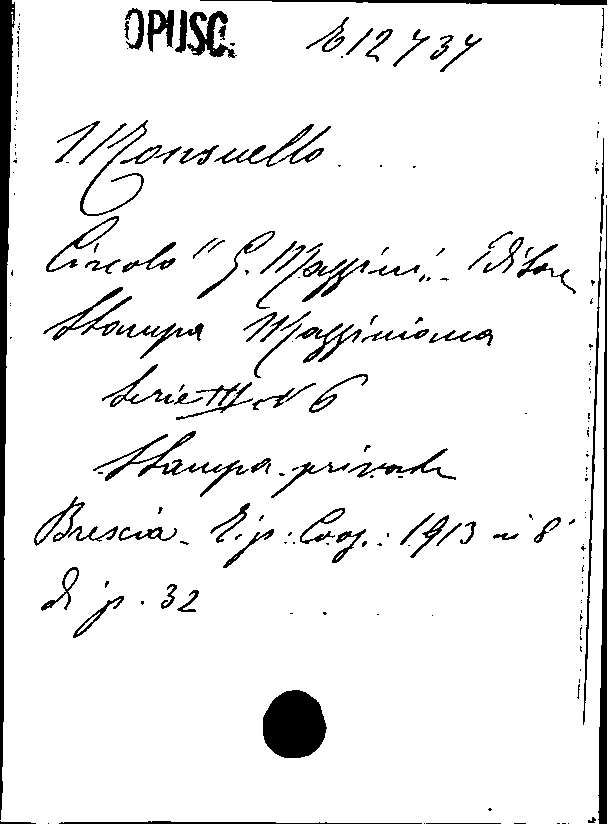 OPUSC. E 12737
Monsuello
Circolo "G. Mazzini" - Editore
Stampa Mazziniana
Serie III N 6
Stampa privata
Brescia - Tip: Coop.: 1913 in 8°
di p. 32